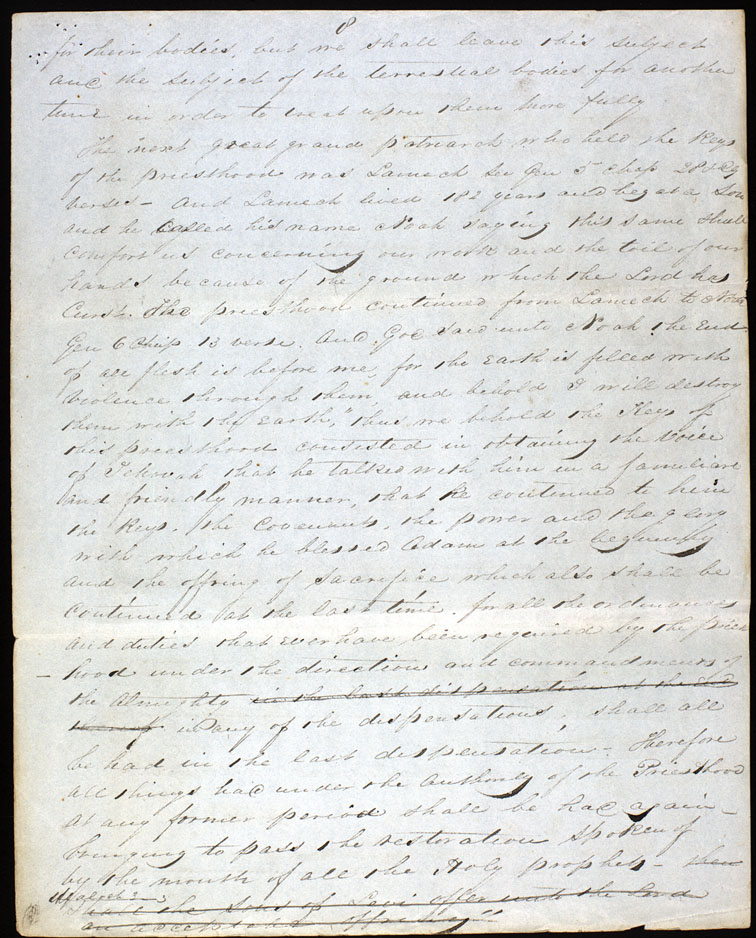 8
for their bodies, but we shall leave this subject
and the subject of the terrestial bodies for another
time in order to treat upon them more fully
The next great grand patriarch who held the Keys
of the priesthood was Lamech See Gen 5th chap 28 & 29
verses – And Lamech lived 182 years and begat a Son
and he called his name Noah saying this same shall
comfort us concerning our work and the toil of our
hands because of the ground which the Lord has
Curst. The priesthood continued from Lamech to Noah
Gen 6 Chap 13 verse. And God said unto Noah the End
of all flesh is before me, for the Earth is filled with
violence through them and behold I will destroy
them with the Earth," thus we behold the Keys of
this priesthood consisted in obtaining the voice
of Jehovah that he talked with him in a familiar
and friendly manner, that he continued to him
the Keys, the Covenants, the power and the glory
with which he blessed Adam at the beginning
and the offring of Sacrifice which also shall be
continued at the last time. for all the ordinances
and duties that Ever have been required by the priest
hood under the direction and commandments of
the Almighty in the last dispensation at the end
thereof in any of the dispensations, shall all
be had in the last dispensation – Therefore
all things had under the Authority of the Priesthood
at any former period shall be had again –
bringing to pass the restoration spoken of
by the mouth of all the Holy prophets – then
shall the sons of Levi offer unto the Lord
an acceptable offering"